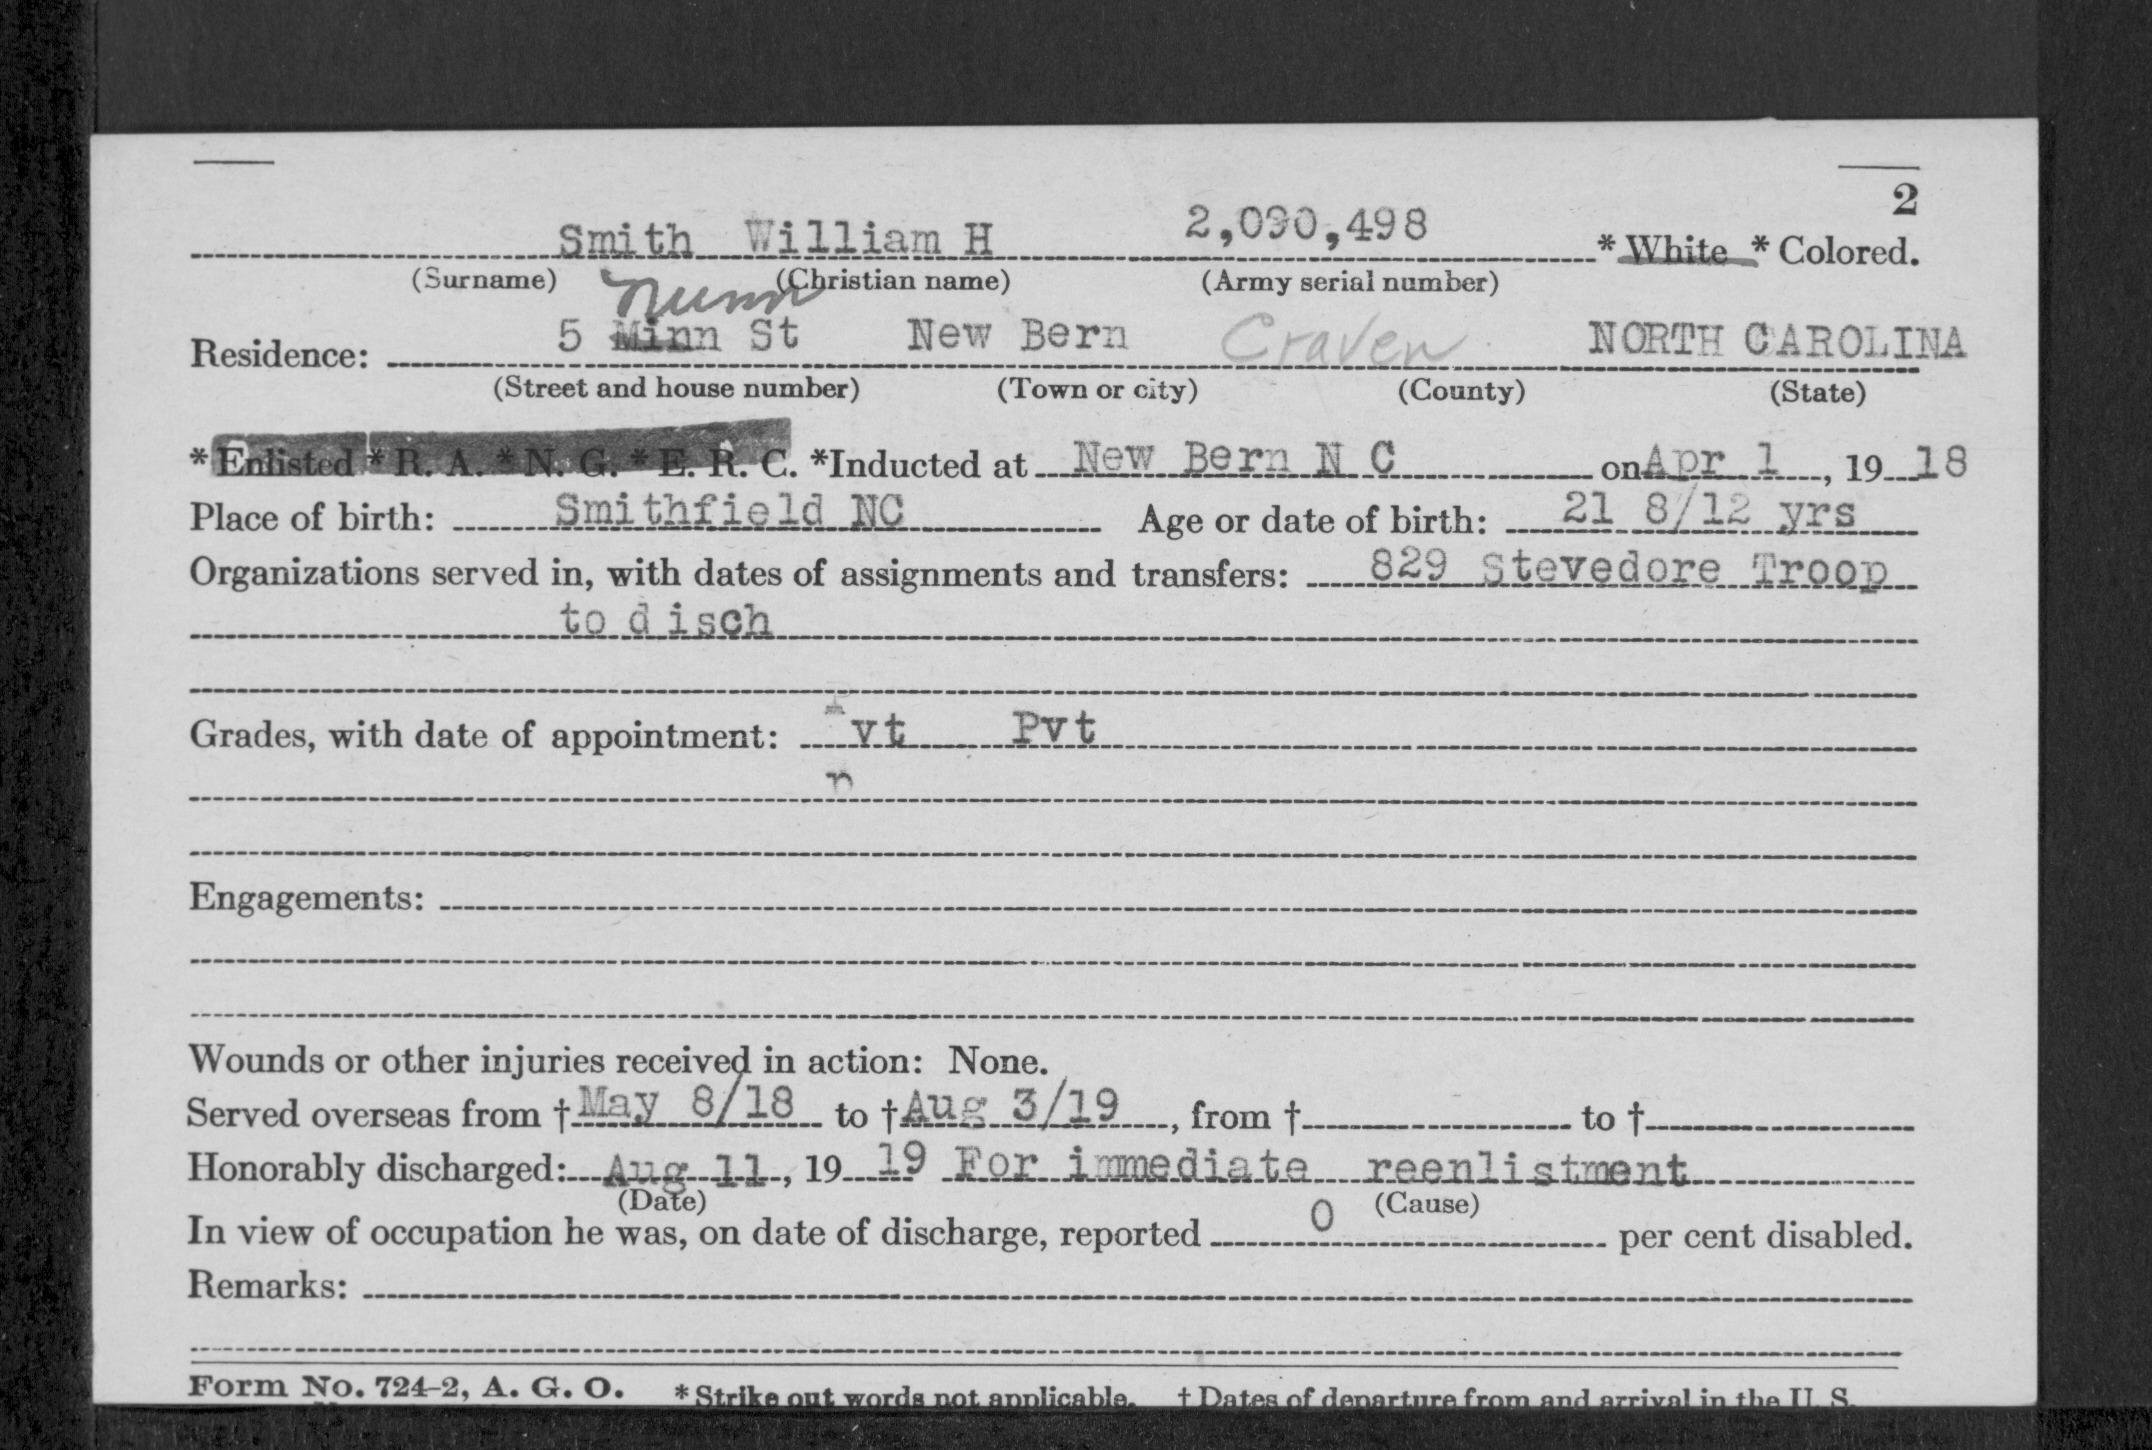 2
Smith William H 2,090,498 * White * Colored.
(Surname) (Christian name) (Army serial number)
Nunn
Residence: 5 Minn St New Bern Craven NORTH CAROLINA
(Street and house number) (Town or city) (County) (State)
* Enlisted * R. A. * N. G. * E. R. C. *Inducted at New Bern N C on Apr 1, 19 18
Place of birth: Smithfield NC Age or date of birth: 21 8/12 yrs
Organizations served in, with dates of assignments and transfers: 829 Stevedore Troop
to disch
Grades, with date of appointment: Pvt Pvt
Engagements:
Wounds or other injuries received in action: None.
Served overseas from † May 8/18 to † Aug 3/19, from † to †
Honorably discharged: Aug 11, 19 19 For immediate reenlistment
(Date) (Cause)
In view of occupation he was, on date of discharge, reported 0 per cent disabled.
Remarks:
Form No. 724-2, A. G. O. * Strike out words not applicable. † Dates of departure from and arrival in the U. S.